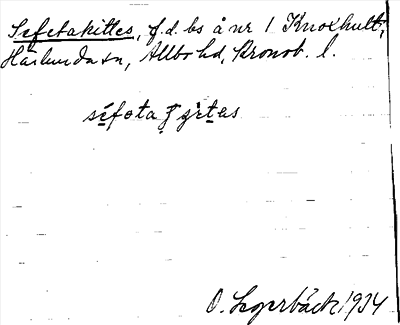 Sefetakittes, f.d. bs å nr 1 Knoxhult,
Härlunda sn, Allbo hd, Kronob. l.
O. Lagerbäck 1934